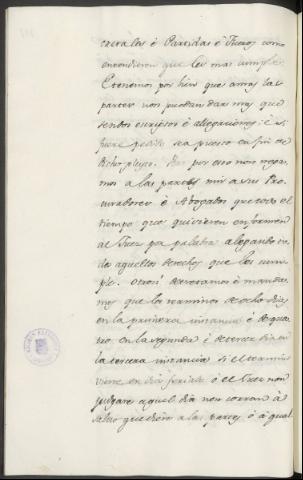 entra los è Partidas è Fueros como
entendieren que les mas cumple
Etenemos por bien que amas las
partes non puedan dar mas que
sendos escriptos è allegaciones: è si
fuere pedido sea puesto en fin de
dicho pleyto. Pero por esso non nega
mos a las partes nin a sus Pro
curadores è Abogados que todo el
tiempo que quisieren enformen
al Juez por palabra alegando to
dos aquellos derechos que les cum
ple. Otrosi declaramos è manda
mos que los terminos de ocho dias
en la primera instancia è de qua
tro en la segunda è de tercer dia en
la tercera instancia si el termino
viene en dia feriado ò el Juez non
juzgare aquel dia non corran à
salvo que dicho a las partes ò à qual